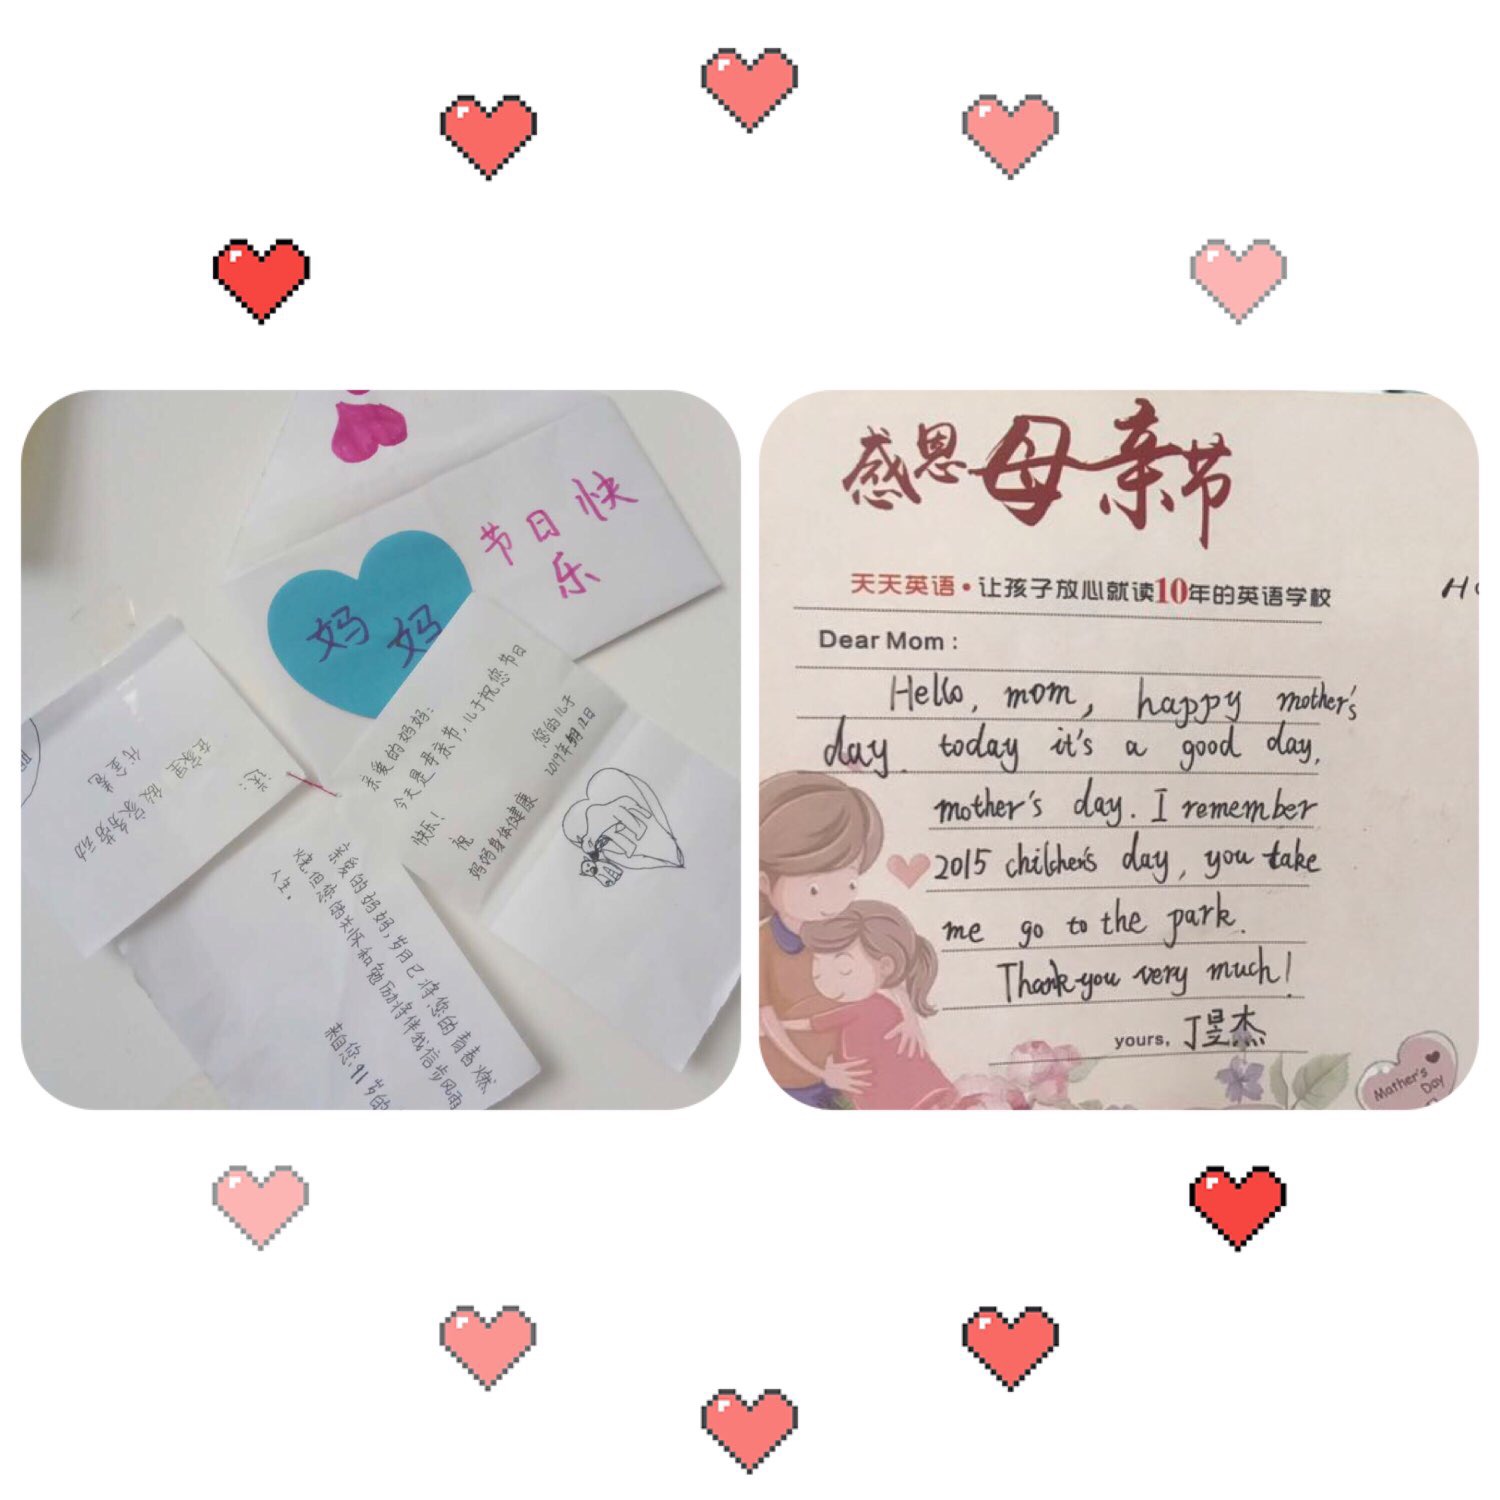 节日快
乐
妈妈
亲爱的妈妈:
今天是母亲节,儿子祝您节日
快乐!
祝
妈妈身体健康
您的儿子
2019年5月12日
送:
在家里
做家务劳动
亲爱的妈妈,岁月已将您的青春燃
烧,但您的关怀和勉励将伴我信步风雨
人生。
来自您11岁的
感恩母亲节
天天英语•让孩子放心就读10年的英语学校
Dear Mom :
Hello, mom, happy mother's
day. today it's a good day,
mother's day. I remember
2015 chilcher's day, you take
me go to the park.
Thank you very much!
yours, 丁昱杰
Mother's
Day